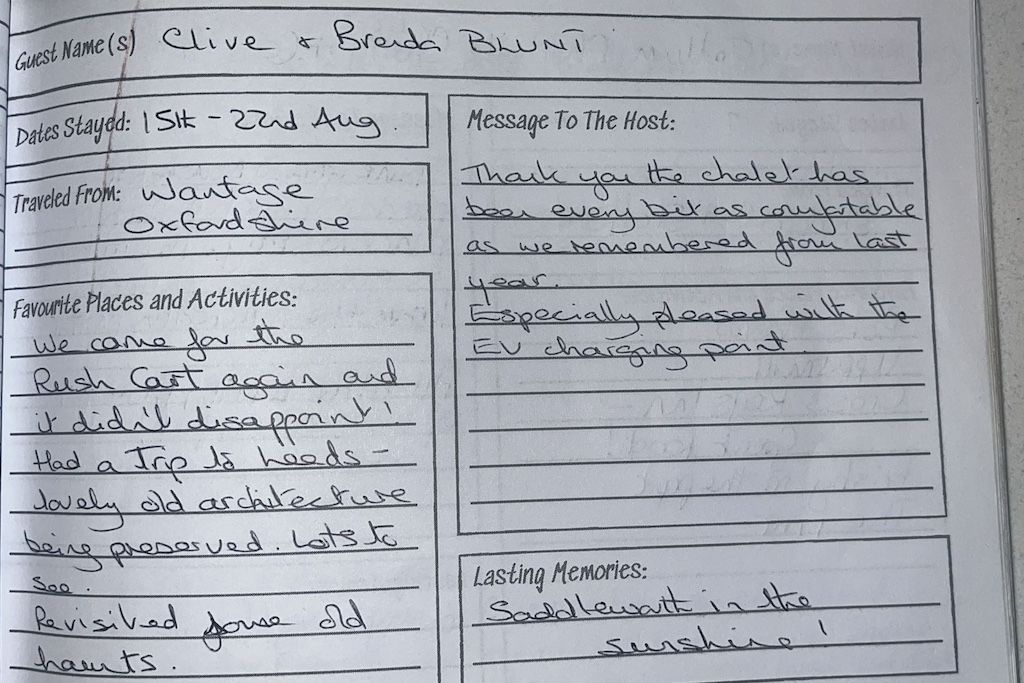 Guest Name(s) Clive & Brenda BLUNT
Dates Stayed: 15th - 22nd Aug.
Traveled From: Wantage
Oxfordshire
Favourite Places and Activities:
We came for the
Rush Cart again and
it didn't disappoint!
Had a Trip to Leeds -
lovely old architecture
being preserved. Lots to
see.
Revisited some old
haunts.
Message To The Host:
Thank you the chalet has
been every bit as comfortable
as we remembered from last
year.
Especially pleased with the
EV charging point.
Lasting Memories:
Saddleworth in the
sunshine!